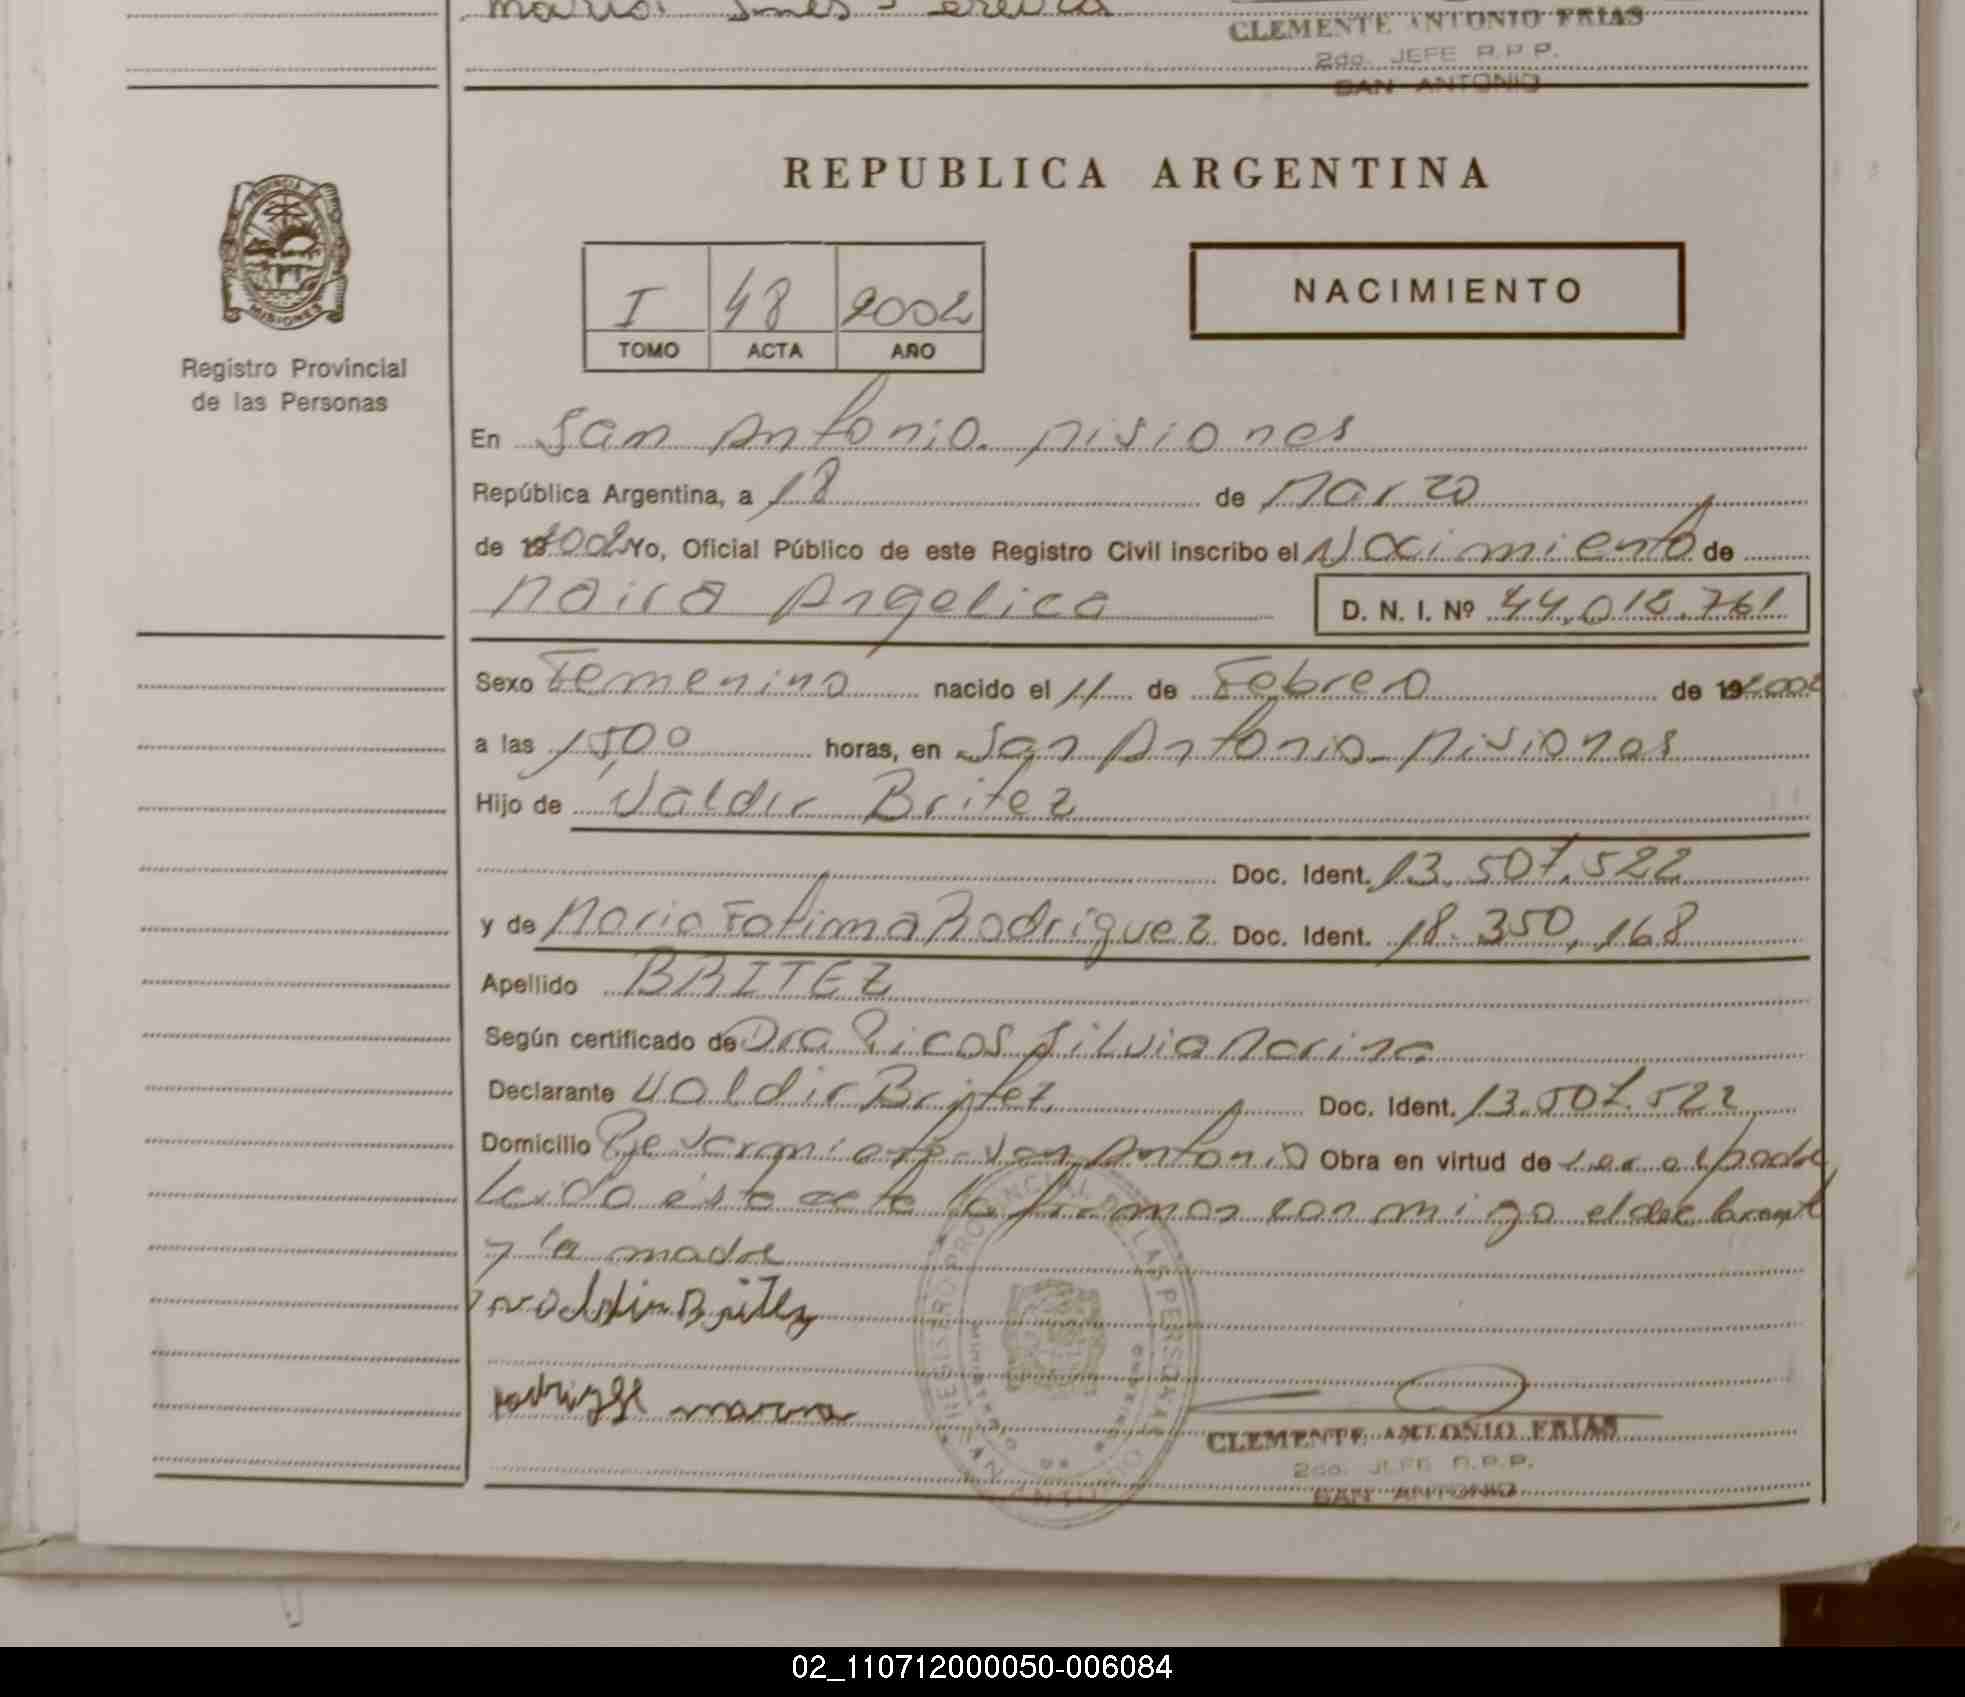 Maria Ines Pereira
CLEMENTE ANTONIO FRIAS
2do. JEFE R.P.P.
SAN ANTONIO
REPUBLICA ARGENTINA
PROVINCIA
MISIONES
Registro Provincial
de las Personas
I 48 2002
TOMO ACTA AÑO
NACIMIENTO
En San Antonio. Misiones
República Argentina, a 18 de Marzo
de 2002 Yo, Oficial Público de este Registro Civil inscribo el Nacimiento de
Maira Angelica D. N. I. Nº 44.018.761
Sexo Femenino nacido el 11 de Febrero de 2002
a las 15,00 horas, en San Antonio. Misiones
Hijo de Valdir Britez
Doc. Ident. 13.507.522
y de Maria Fatima Rodriguez Doc. Ident. 18.350.168
Apellido BRITEZ
Según certificado de Dra Silvia Marina
Declarante Valdir Britez Doc. Ident. 13.507.522
Domicilio San Antonio Obra en virtud de ser el padre
Leido este acta la firman conmigo el declarante
y la madre
Valdir Britez
REGISTRO PROVINCIAL DE LAS PERSONAS
maria
CLEMENTE ANTONIO FRIAS
2do. JEFE R.P.P.
SAN ANTONIO
02_110712000050-006084